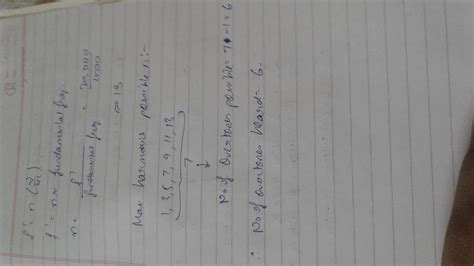 f' = n (v/4l)
f' = n × fundamental freq
n = f'/fundamental freq = 20,000/1500
= 13
Max harmonics possible is:-
1, 3, 5, 7, 9, 11, 13
7
↓
No of Overtones possible = 7 - 1 = 6
∴ No of overtones heard = 6.